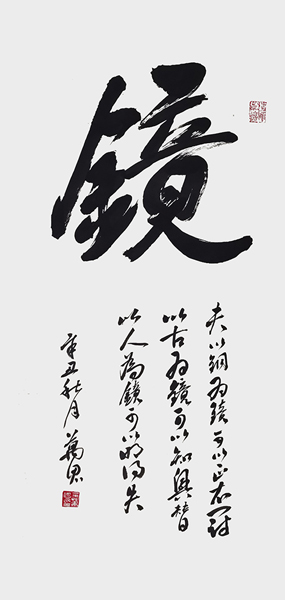 鏡
夫以銅為鏡可以正衣冠
以古為鏡可以知興替
以人為鏡可以明得失
辛丑秋月